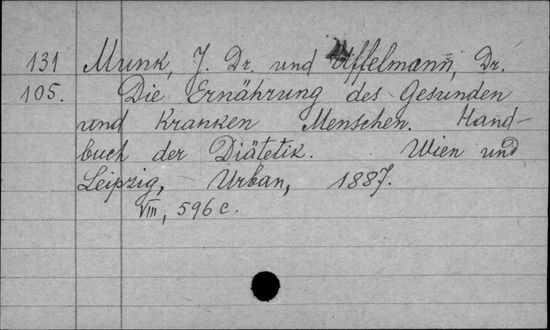 131 Munk, J. Dr. und Uffelmann, Dr.
105. Die Ernährung des Gesunden
und Kranken Menschen. Hand-
buch der Diätetik. Wien und
Leipzig, Urban, 1887.
VIII, 596 c.